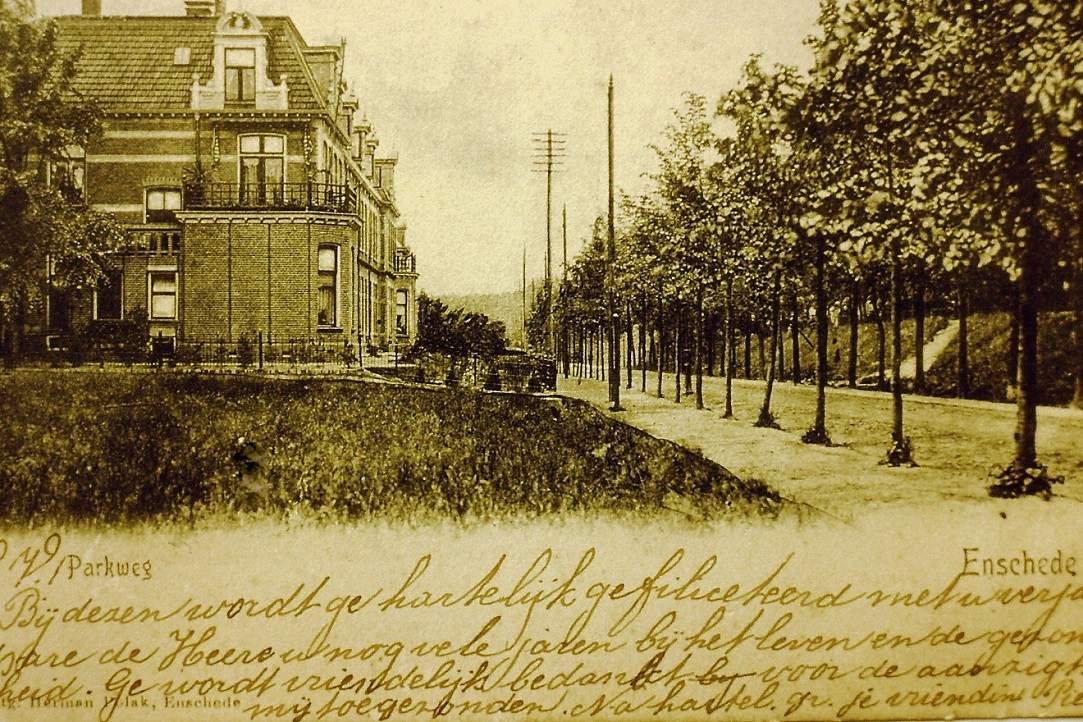 Parkweg
Enschede
Bij dezen wordt ge hartelijk gefiliceteerd met u verja
spare de Heere u nog vele jaren bij het leven en de gezon
heid. Ge wordt vriendelijk bedankt voor de aanzigt
Herman Polak, Enschede
mij toegezonden. Na hartel. gr. je vriendin